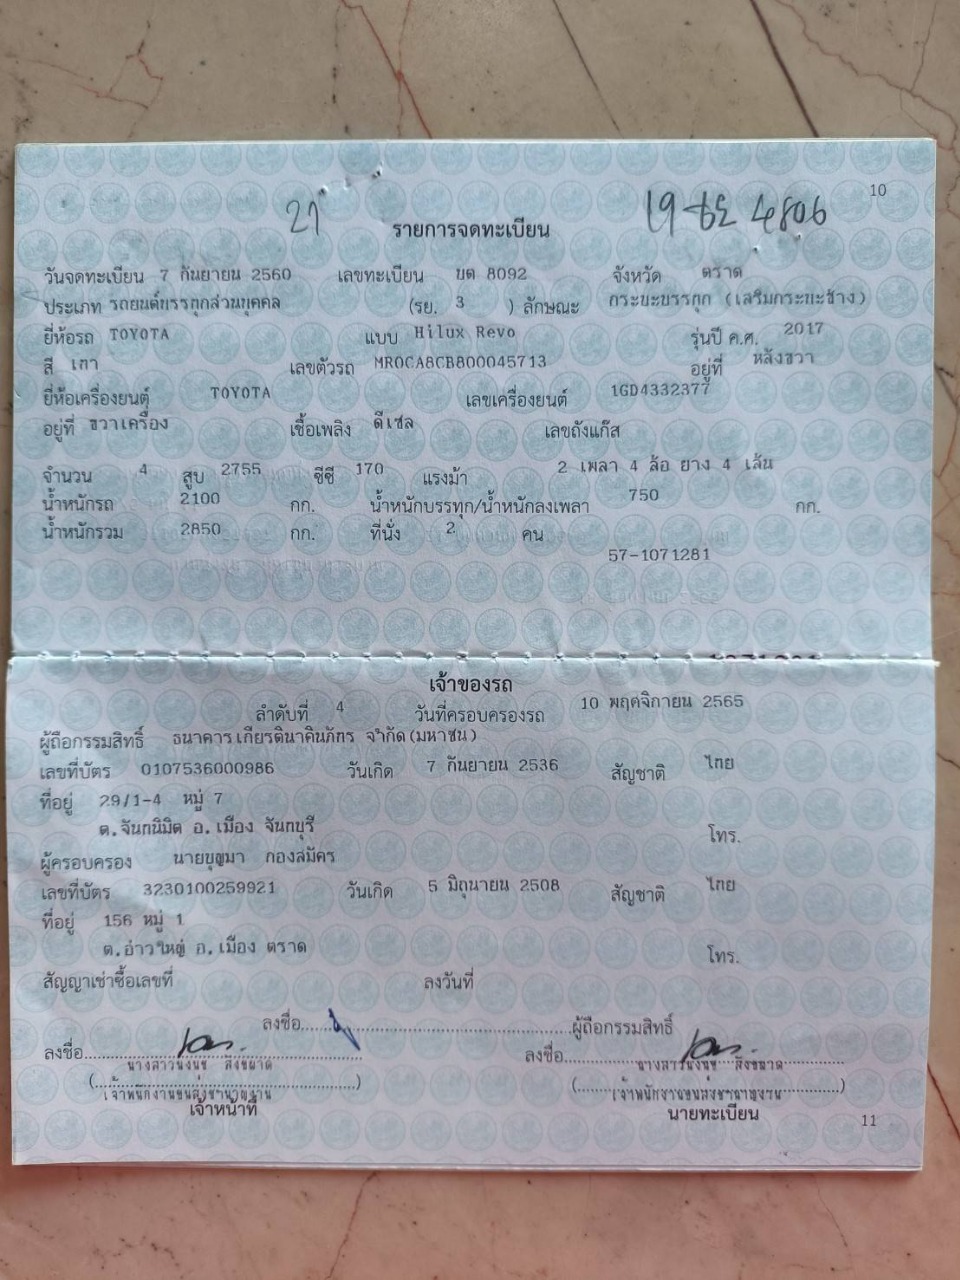 10
27
19-ขอ 4806
รายการจดทะเบียน
วันจดทะเบียน 7 กันยายน 2560 เลขทะเบียน บต 8092 จังหวัด ตราด
ประเภท รถยนต์บรรทุกส่วนบุคคล (รย. 3 ) ลักษณะ กระบะบรรทุก (เสริมกระบะข้าง)
ยี่ห้อรถ TOYOTA แบบ Hilux Revo รุ่นปี ค.ศ. 2017
สี เทา เลขตัวรถ MR0CA8CB800045713 อยู่ที่ หลังขวา
ยี่ห้อเครื่องยนต์ TOYOTA เลขเครื่องยนต์ 1GD4332377
อยู่ที่ ขวาเครื่อง เชื้อเพลิง ดีเซล เลขถังแก๊ส
จำนวน 4 สูบ 2755 ซีซี 170 แรงม้า 2 เพลา 4 ล้อ ยาง 4 เส้น
น้ำหนักรถ 2100 กก. น้ำหนักบรรทุก/น้ำหนักลงเพลา 750 กก.
น้ำหนักรวม 2850 กก. ที่นั่ง 2 คน
57-1071281
เจ้าของรถ
ลำดับที่ 4 วันที่ครอบครองรถ 10 พฤศจิกายน 2565
ผู้ถือกรรมสิทธิ์ ธนาคารเกียรตินาคินภัทร จำกัด(มหาชน)
เลขที่บัตร 0107536000986 วันเกิด 7 กันยายน 2536 สัญชาติ ไทย
ที่อยู่ 29/1-4 หมู่ 7
ต.จันทนิมิต อ.เมือง จันทบุรี โทร.
ผู้ครอบครอง นายบุญมา กองสมัคร
เลขที่บัตร 3230100259921 วันเกิด 5 มิถุนายน 2508 สัญชาติ ไทย
ที่อยู่ 156 หมู่ 1
ต.อ่าวใหญ่ อ.เมือง ตราด โทร.
สัญญาเช่าซื้อเลขที่ ลงวันที่
ลงชื่อ ผู้ถือกรรมสิทธิ์
ลงชื่อ ลงชื่อ
นางสาวนงนุช นางสาวนงนุช
เจ้าพนักงานขนส่งชำนาญงาน เจ้าพนักงานขนส่งชำนาญงาน
เจ้าหน้าที่ นายทะเบียน
11